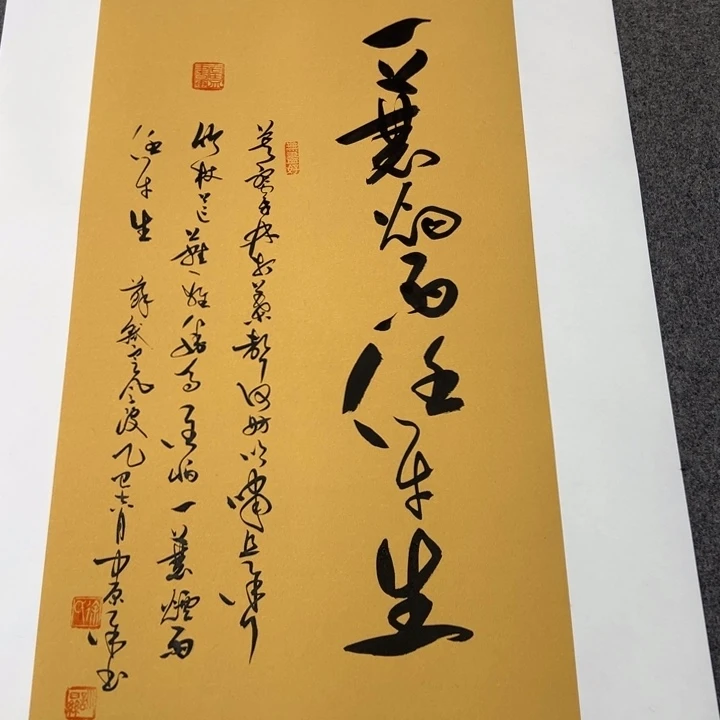 一蓑烟雨任平生
莫听穿林打叶声何妨吟啸且徐行
竹杖芒鞋轻胜马谁怕一蓑煙雨
任平生 苏轼定风波乙巳六月中原